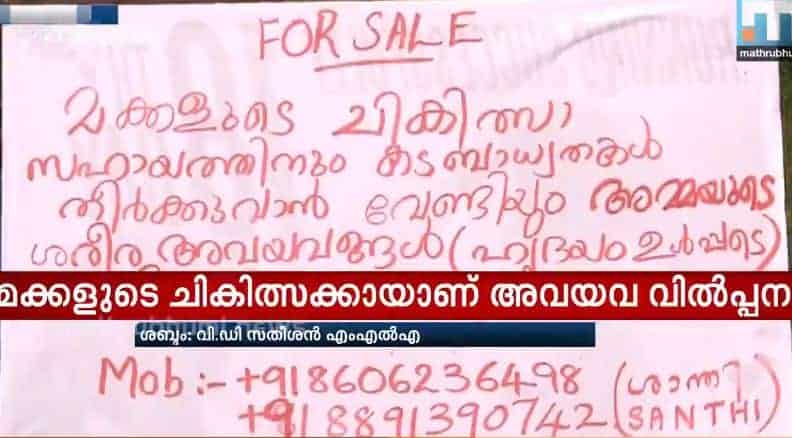 mathrubhu
FOR SALE
മക്കളുടെ ചികിത്സാ
സഹായത്തിനും കടബാധ്യതകൾ
തീർക്കുവാൻ വേണ്ടിയും അമ്മയുടെ
ശരീര അവയവങ്ങൾ (ഹൃദയം ഉൾപ്പടെ)
മക്കളുടെ ചികിത്സക്കായാണ് അവയവ വിൽപ്പന
ശബ്ദം: വി.ഡി സതീശൻ എംഎൽഎ
Mob :- +918606236498 (ശാന്തി
+918891390742 (SANTHI)